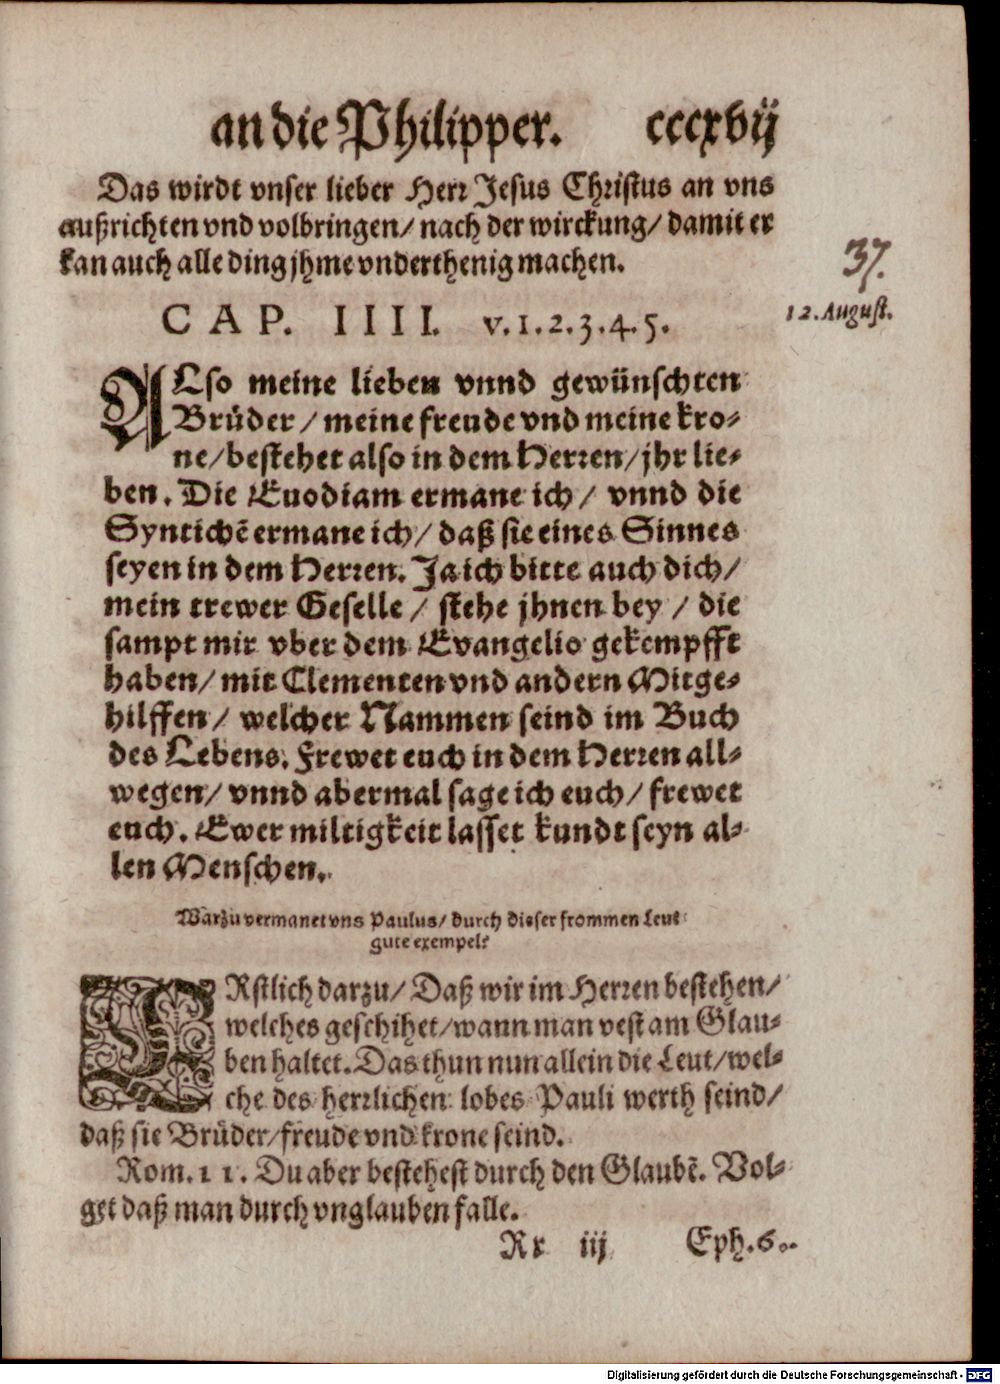 an die Philipper. cccxvij
Das wirdt vnser lieber Herr Jesus Christus an vns
außrichten vnd volbringen/ nach der wirckung/ damit er
kan auch alle ding jhme vnderthenig machen.
37.
12. August.
CAP. IIII. v.1.2.3.4.5.
ALso meine lieben vnnd gewünschten
Brüder/ meine freude vnd meine kro-
ne/ bestehet also in dem Herren/ jhr lie-
ben. Die Euodiam ermane ich/ vnnd die
Syntichē ermane ich/ daß sie eines Sinnes
seyen in dem Herren. Ja ich bitte auch dich/
mein trewer Geselle/ stehe jhnen bey/ die
sampt mir vber dem Evangelio gekempfft
haben/ mit Clementen vnd andern Mitge-
hilffen/ welcher Nammen seind im Buch
des Lebens. Frewet euch in dem Herren all-
wegen/ vnnd abermal sage ich euch/ frewet
euch. Ewer miltigkeit lasset kundt seyn al-
len Menschen.
Warzu vermanet vns Paulus/ durch dieser frommen Leut
gute exempel?
ERstlich darzu/ Daß wir im Herren bestehen/
welches geschihet/ wann man vest am Glau-
ben haltet. Das thun nun allein die Leut/ wel-
che des herrlichen lobes Pauli werth seind/
daß sie Brüder/ freude vnd krone seind.
Rom. 11. Du aber bestehest durch den Glaubē. Vol-
get daß man durch vnglauben falle.
Rr iij Eph. 6.
Digitalisierung gefördert durch die Deutsche Forschungsgemeinschaft - DFG